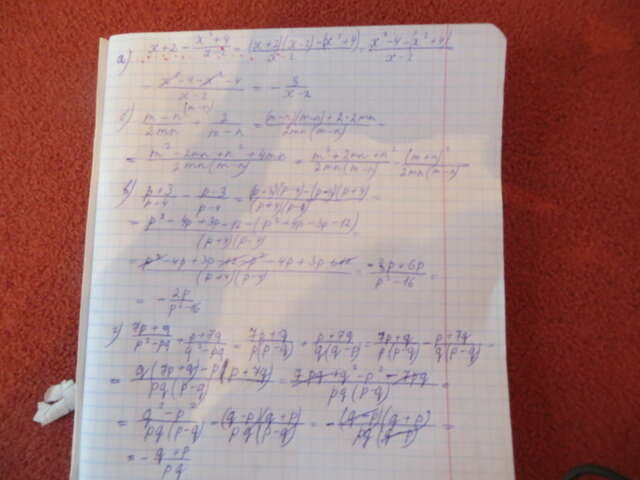 а) x+2 - (x²+4)/(x-2) = ((x+2)(x-2)-(x²+4))/(x-2) = (x²-4-(x²+4))/(x-2)
= (x²-4-x²-4)/(x-2) = -8/(x-2)
б) (m-n)/(2mn) + 2/(m-n) = ((m-n)(m-n)+2·2mn)/(2mn(m-n)) =
= (m²-2mn+n²+4mn)/(2mn(m-n)) = (m²+2mn+n²)/(2mn(m-n)) = (m+n)²/(2mn(m-n))
в) (p+3)/(p+4) - (p-3)/(p-4) = ((p+3)(p-4)-(p-3)(p+4))/((p+4)(p-4)) =
= (p²-4p+3p-12-(p²+4p-3p-12))/((p+4)(p-4))
= (p²-4p+3p-12-p²-4p+3p+12)/((p+4)(p-4)) = /(p²-16) =
= -2p/(p²-16)
г) (7p+q)/(p²-pq) + (p+7q)/(q²-pq) = (7p+q)/(p(p-q)) + (p+7q)/(q(q-p)) = (7p+q)/(p(p-q)) - (p+7q)/(q(p-q)) =
= (q(7p+q)-p(p+7q))/(pq(p-q)) = (7pq+q²-p²-7pq)/(pq(p-q)) =
= (q²-p²)/(pq(p-q)) = ((q-p)(q+p))/(pq(p-q)) = -((q-p)(q+p))/(pq(q-p)) =
= -(q+p)/(pq)